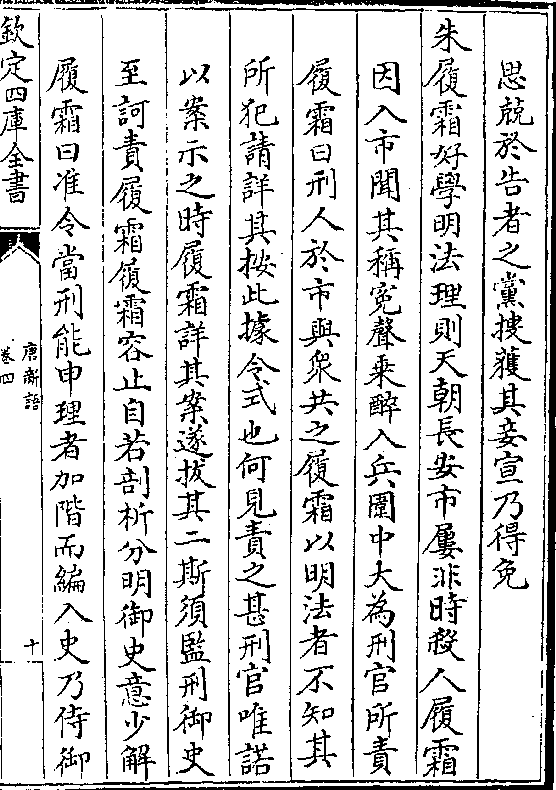 思兢於告者之黨搜獲其妾宣乃得免
朱履霜好學明法理則天朝長安市屢非時殺人履霜
因入市聞其稱寃聲乗醉入兵圍中大為刑官所責
履霜曰刑人於市與衆共之履霜以明法者不知其
所犯請詳其按此據令式也何見責之甚刑官唯諾
以案示之時履霜詳其案遂拔其二斯須監刑御史
至訶責履霜履霜容止自若剖析分明御史意少解
履霜曰准令當刑能申理者加階而編入史乃侍御
欽定四庫全書
唐新語
卷四
十